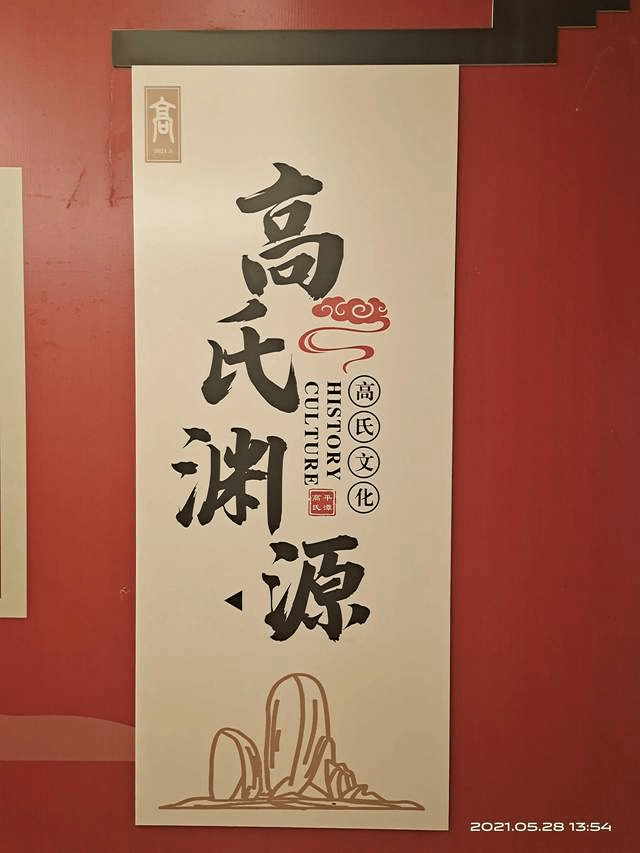 高
2021.5
高氏渊源
高氏文化
HISTORY
CULTURE
平潭
高氏
2021.05.28 13:54